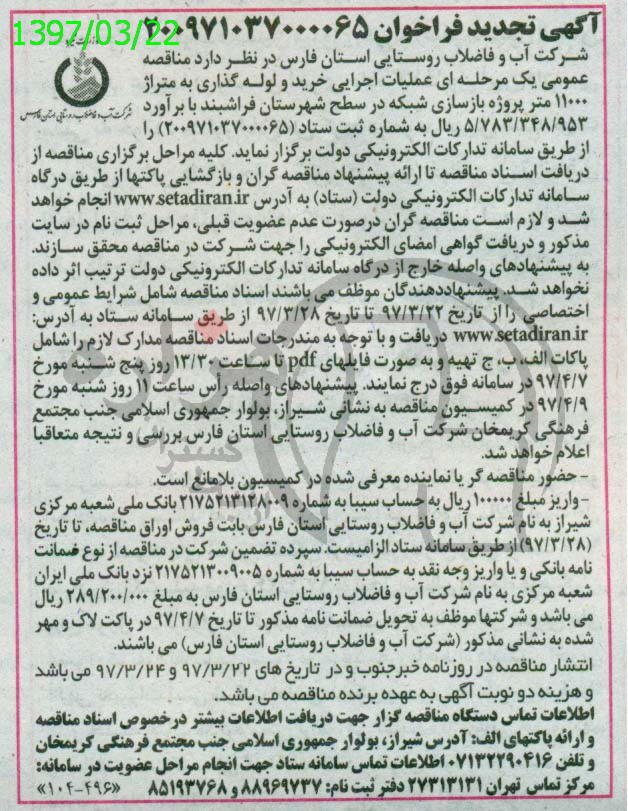 1397/03/22
آگهی تجدید فراخوان ۲۰۰۹۷۱۰۳۷۰۰۰۰۶۵
شرکت آب و فاضلاب روستایی استان فارس در نظر دارد مناقصه
عمومی یک مرحله ای عملیات اجرایی خرید و لوله گذاری به متراژ
۱۱۰۰۰ متر پروژه بازسازی شبکه در سطح شهرستان فراشبند با برآورد
۵/۷۸۳/۳۴۸/۹۵۳ ریال به شماره ثبت ستاد (۲۰۰۹۷۱۰۳۷۰۰۰۰۶۵) را
شرکت آب و فاضلاب روستایی استان فارس
از طریق سامانه تدارکات الکترونیکی دولت برگزار نماید. کلیه مراحل برگزاری مناقصه از
دریافت اسناد مناقصه تا ارائه پیشنهاد مناقصه گران و بازگشایی پاکتها از طریق درگاه
سامانه تدارکات الکترونیکی دولت (ستاد) به آدرس www.setadiran.ir انجام خواهد
شد و لازم است مناقصه گران درصورت عدم عضویت قبلی، مراحل ثبت نام در سایت
مذکور و دریافت گواهی امضای الکترونیکی را جهت شرکت در مناقصه محقق سازند.
به پیشنهادهای واصله خارج از درگاه سامانه تدارکات الکترونیکی دولت ترتیب اثر داده
نخواهد شد. پیشنهاددهندگان موظف می باشند اسناد مناقصه شامل شرایط عمومی و
اختصاصی را از تاریخ ۹۷/۳/۲۲ تا تاریخ ۹۷/۳/۲۸ از طریق سامانه ستاد به آدرس:
www.setadiran.ir دریافت و با توجه به مندرجات اسناد مناقصه مدارک لازم را شامل
پاکات الف، ب، ج تهیه و به صورت فایلهای pdf تا ساعت ۱۳/۳۰ روز پنج شنبه مورخ
۹۷/۴/۷ در سامانه فوق درج نمایند. پیشنهادهای واصله رأس ساعت ۱۱ روز شنبه مورخ
۹۷/۴/۹ در کمیسیون مناقصه به نشانی شیراز، بولوار جمهوری اسلامی جنب مجتمع
فرهنگی کریمخان شرکت آب و فاضلاب روستایی استان فارس بررسی و نتیجه متعاقبا
اعلام خواهد شد.
- حضور مناقصه گر یا نماینده معرفی شده در کمیسیون بلامانع است.
- واریز مبلغ ۱۰۰۰۰۰ ریال به حساب سیبا به شماره ۲۱۷۵۲۱۳۱۲۸۰۰۹ بانک ملی شعبه مرکزی
شیراز به نام شرکت آب و فاضلاب روستایی استان فارس بابت فروش اوراق مناقصه، تا تاریخ
(۹۷/۳/۲۸) از طریق سامانه ستاد الزامیست. سپرده تضمین شرکت در مناقصه از نوع ضمانت
نامه بانکی و یا واریز وجه نقد به حساب سیبا به شماره ۲۱۷۵۲۱۳۰۰۹۰۰۵ نزد بانک ملی ایران
شعبه مرکزی به نام شرکت آب و فاضلاب روستایی استان فارس به مبلغ ۲۸۹/۲۰۰/۰۰۰ ریال
می باشد و شرکتها موظف به تحویل ضمانت نامه مذکور تا تاریخ ۹۷/۴/۷ در پاکت لاک و مهر
شده به نشانی مذکور (شرکت آب و فاضلاب روستایی استان فارس) می باشند.
انتشار مناقصه در روزنامه خبرجنوب و در تاریخ های ۹۷/۳/۲۲ و ۹۷/۳/۲۴ می باشد
و هزینه دو نوبت آگهی به عهده برنده مناقصه می باشد.
اطلاعات تماس دستگاه مناقصه گزار جهت دریافت اطلاعات بیشتر درخصوص اسناد مناقصه
و ارائه پاکتهای الف: آدرس شیراز، بولوار جمهوری اسلامی جنب مجتمع فرهنگی کریمخان
و تلفن ۰۷۱۳۲۲۹۰۴۱۶ اطلاعات تماس سامانه ستاد جهت انجام مراحل عضویت در سامانه:
مرکز تماس تهران ۲۷۳۱۳۱۳۱ دفتر ثبت نام: ۸۸۹۶۹۷۳۷ و ۸۵۱۹۳۷۶۸ «۱۰۴-۴۹۶»